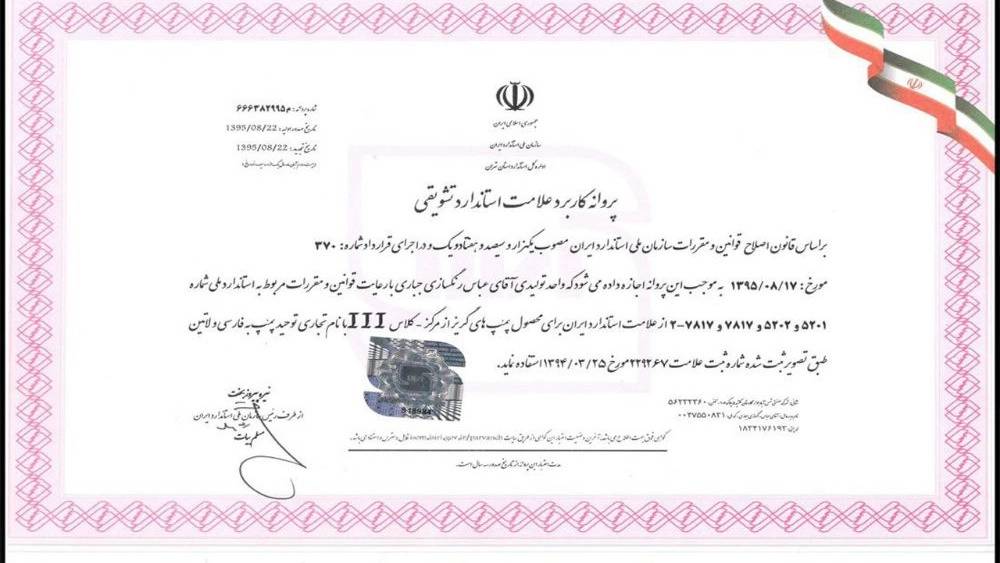 جمهوری اسلامی ایران
سازمان ملی استاندارد ایران
اداره کل استاندارد استان تهران
شماره پروانه: ۶۶۶۳۸۲۹۹۵م
تاریخ صدور اولیه: 1395/08/22
تاریخ تجدید: 1395/08/22
پروانه کاربرد علامت استاندارد تشویقی
براساس قانون اصلاح قوانین و مقررات سازمان ملی استاندارد ایران مصوب یکهزار و سیصد و هفتاد و یک و در اجرای قرارداد شماره: ۳۷۰
مورخ: ۱۳۹۵/۰۸/۱۷ به موجب این پروانه اجازه داده می شود که واحد تولیدی آقای عباس رنگسازی جباری با رعایت قوانین و مقررات مربوط به استاندارد ملی شماره
۵۲۰۱ و ۵۲۰۲ و ۷۸۱۷ و ۷۸۱۷-۲ از علامت استاندارد ایران برای محصول پمپ های گریز از مرکز - کلاس III با نام تجاری توحید پمپ به فارسی و لاتین
طبق تصویر ثبت شده شماره ثبت علامت ۲۲۹۲۶۷ مورخ ۱۳۹۴/۰۳/۲۵ استفاده نماید.
نیره پیروزبخت
از طرف رئیس سازمان ملی استاندارد ایران
مسلم بیات
۵۶۲۳۲۳۶۰
۰۰۳۷۵۵۰۸۳۱
۱۸۳۳۱۷۶۱۹۳
گواهی فوق جهت اطلاع می باشد، آخرین وضعیت اعتبار این گواهی از طریق سایت قابل دسترس و استفاده می باشد.
مدت اعتبار این پروانه از تاریخ صدور سه سال است.